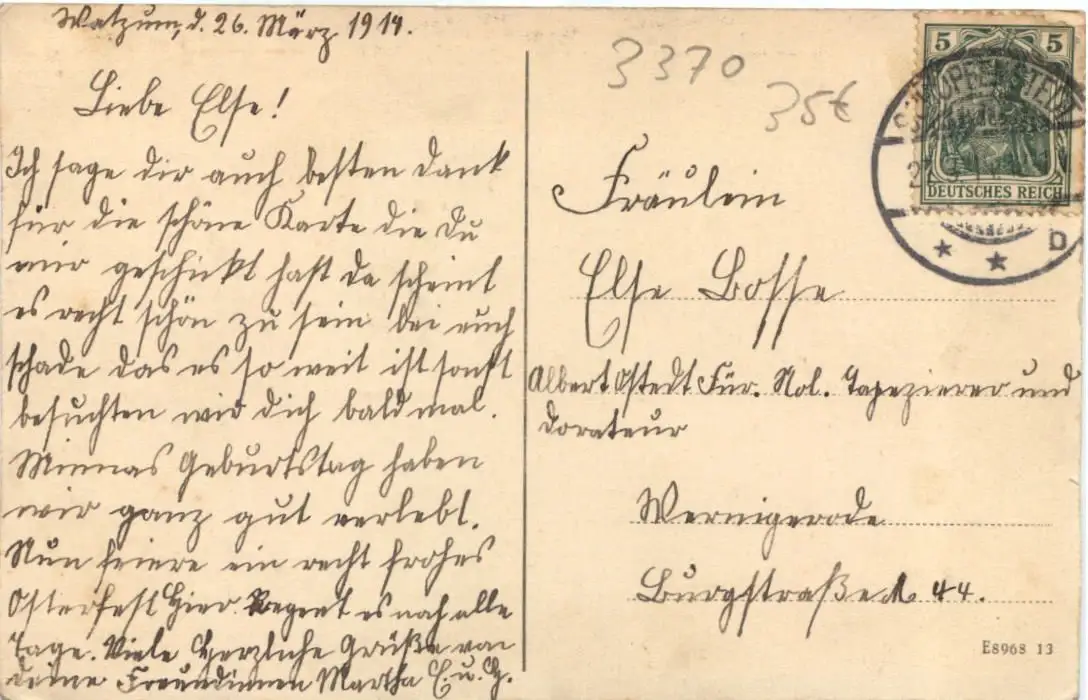 Watzum, d. 26. März 1914.
Liebe Else!
Ich sage dir auch besten Dank
für die schöne Karte die Du
mir geschickt hast da scheint
es recht schön zu sein bei euch
schade das es so weit ist sonst
besuchten wir dich bald mal.
Minnas Geburtstag haben
wir ganz gut verlebt.
Nun feiere ein recht frohes
Osterfest Hier Regent es noch alle
Tage. Viele Herzliche Grüße von
deine Freundinnen Martha E. u. H.
3370
35€
5 5
DEUTSCHES REICH
D
Fräulein
Else Bosse
Albert Ostedt Für. Nol. Tapezierer und
Dorateur
Wernigerode
Burgstraße 44.
E8968 13